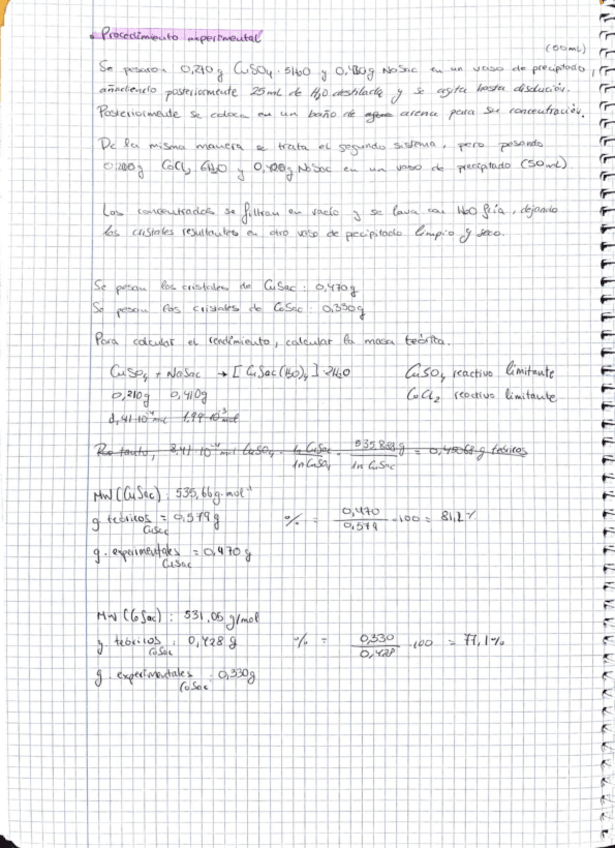 • Procedimiento experimental
(100mL)
Se pesaron 0,210g CuSO4 · 5H2O y 0,410g NaSac en un vaso de precipitado,
añadiendo posteriormente 25mL de H2O destilada y se agita hasta disolución.
Posteriormente se colocan en un baño de arena para su concentración.
De la misma manera se trata el segundo sistema, pero pesando
0,200g CoCl2 6H2O y 0,420g NaSac en un vaso de precipitado (50mL)
Los concentrados se filtran en vacío y se lava con H2O fría, dejando
los cristales resultantes en otro vaso de precipitado limpio y seco.
Se pesan los cristales de CuSac : 0,470g
Se pesan los cristales de CoSac : 0,330g
Para calcular el rendimiento, calcular la masa teórica.
CuSO4 + NaSac → [CuSac(H2O)4] 2H2O CuSO4 reactivo limitante
0,210g 0,410g CoCl2 reactivo limitante
8,41·10⁻⁴mol 1,99·10⁻³mol
Por tanto, 8,41·10⁻⁴mol CuSO4 · 1n CuSac / 1n CuSO4 · 535,868g / 1n CuSac = 0,45068 g teóricos
MW (CuSac) : 535,66g·mol⁻¹
g teóricos CuSac = 0,579g % = 0,470 / 0,579 · 100 = 81,2%
g. experimentales CuSac = 0,470g
MW (CoSac) : 531,05 g/mol
g teóricos CoSac : 0,428 g % = 0,330 / 0,428 · 100 = 77,1%
g. experimentales CoSac : 0,330g